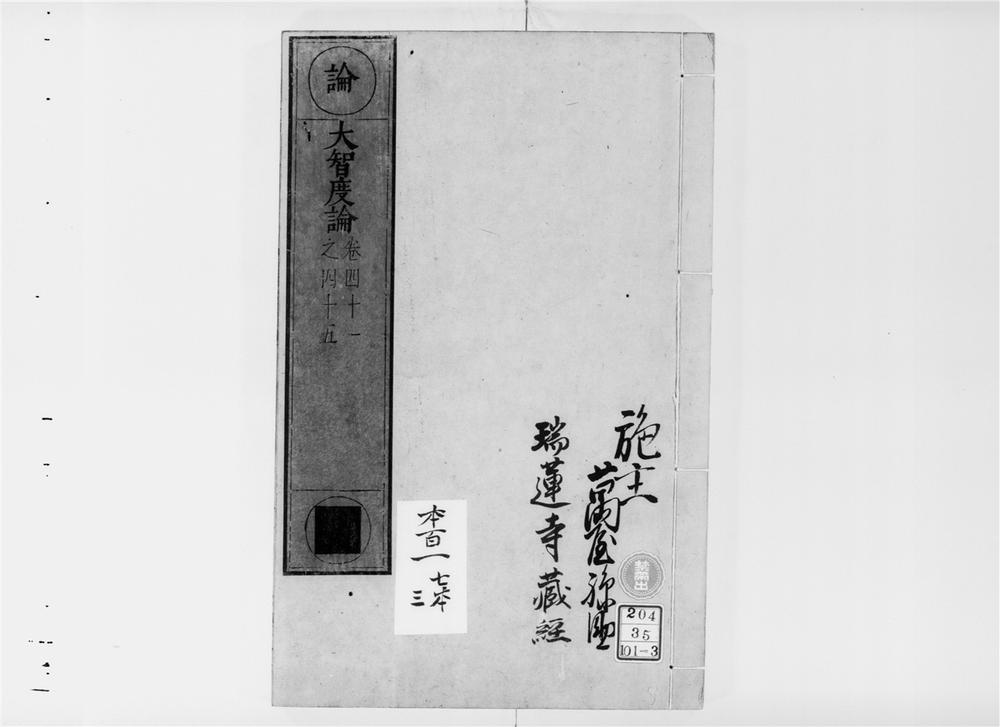 論
大智度論
卷四十一
之四十五
施主
萬屋
瑞蓮寺藏經
禁帯出
204
35
101-3
本百一
七本
三